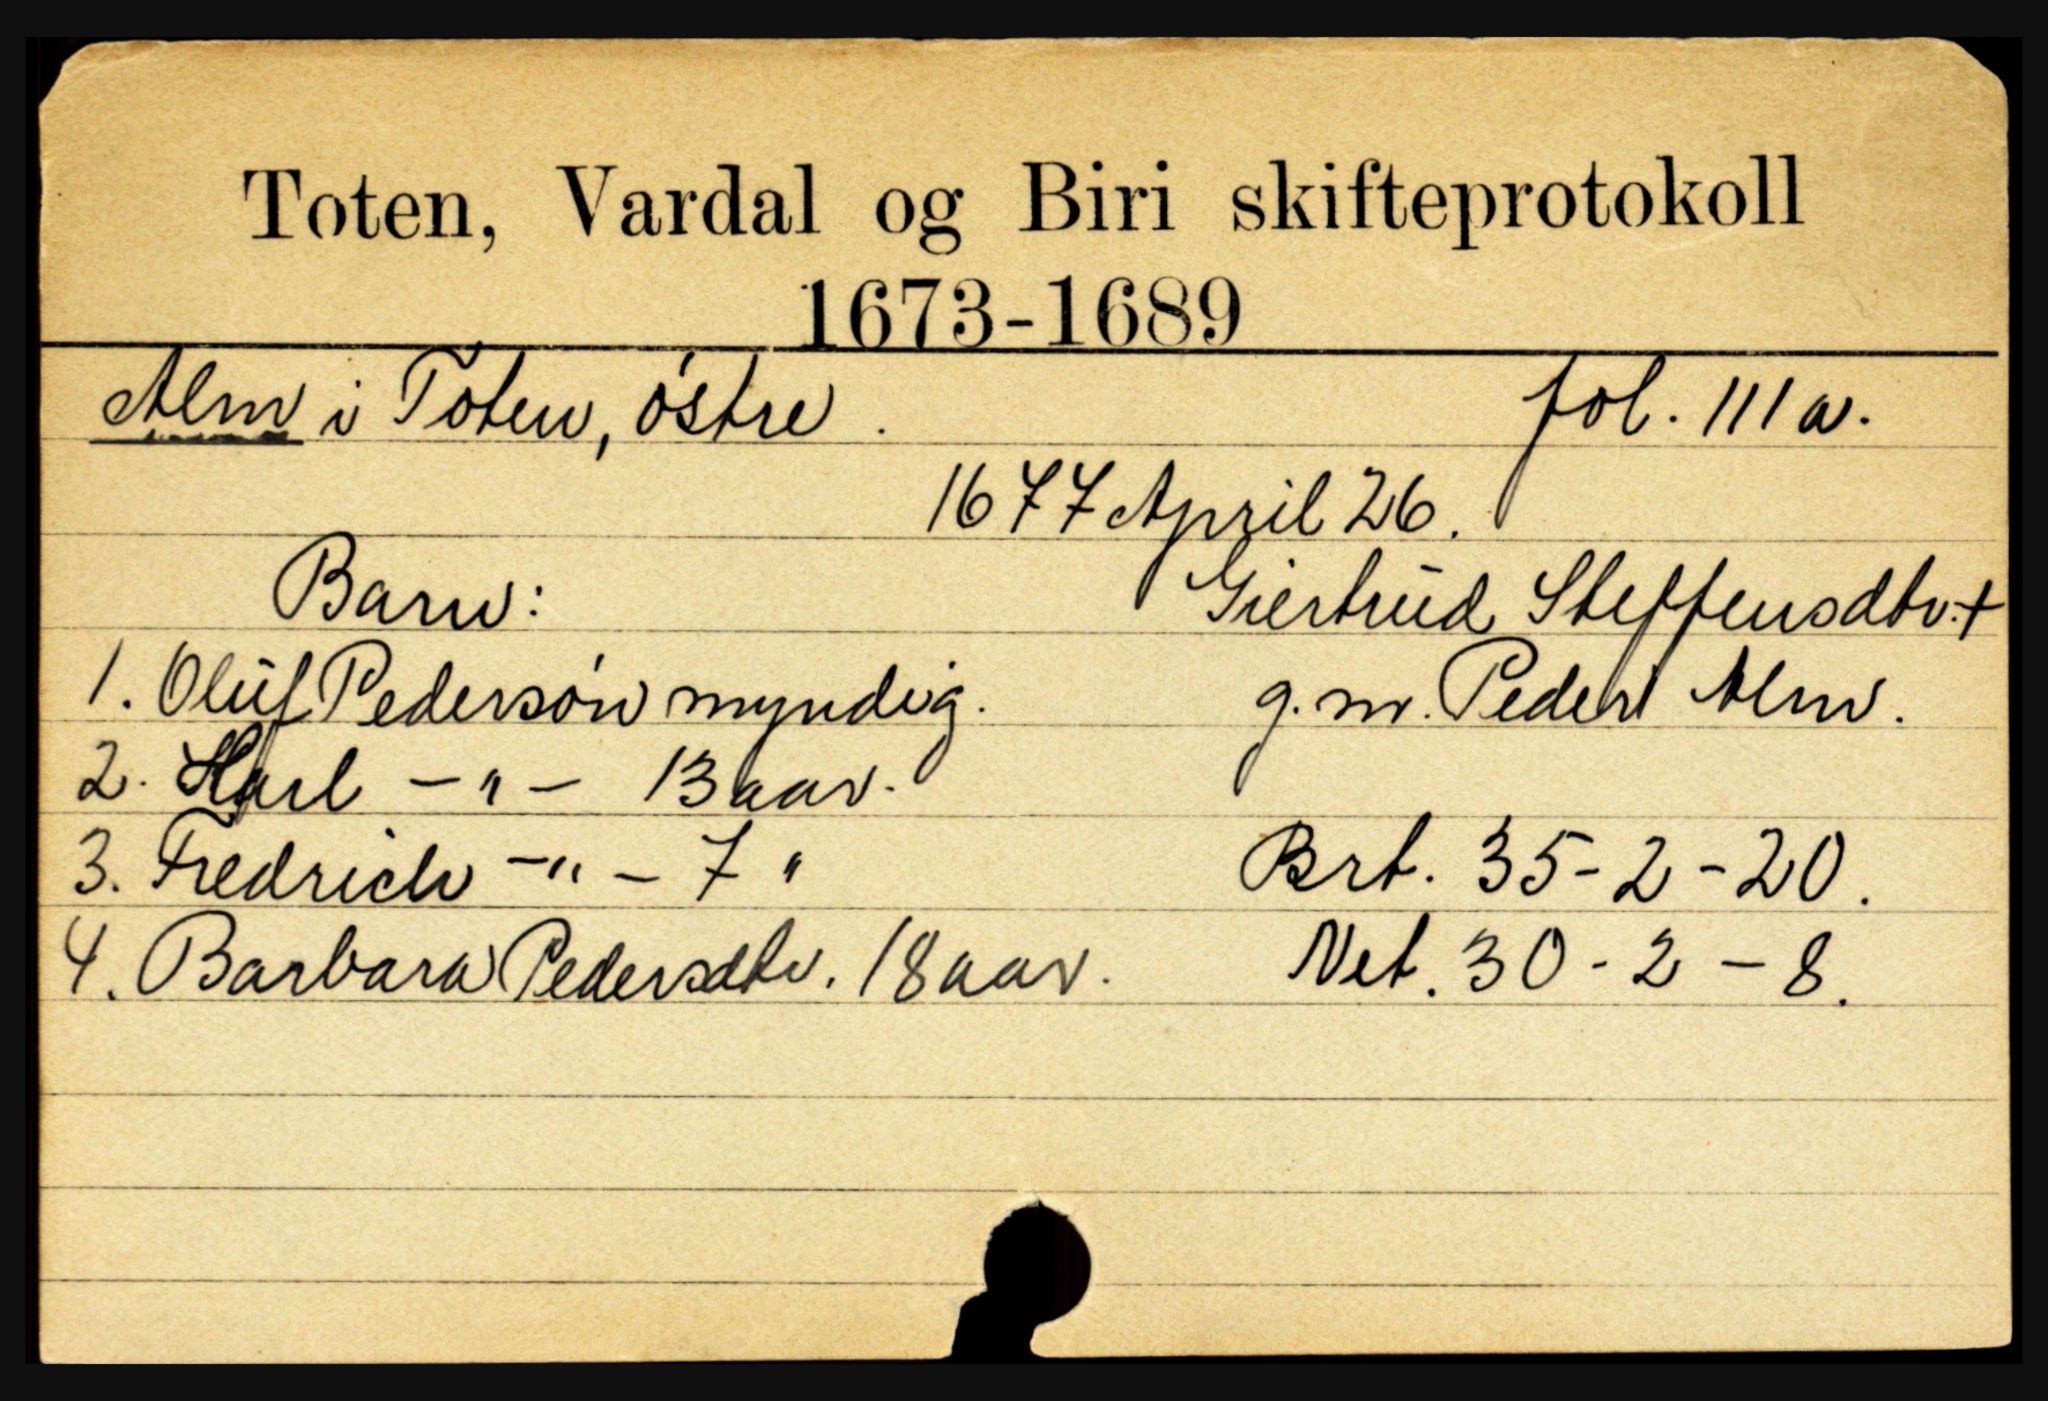 Toten, Vardal og Biri skifteprotokoll
1673-1689
Alm i Toten, östre. fol. 111a.
1677 April 26.
Barn: Giertrud Steffensdtr. +
1. Oluf Pedersön myndig. g. m. Peder Alm.
2. Karl - " - 13 aar.
3. Fredrich - " - 7 " Brt. 35-2-20.
4. Barbara Pedersdtr. 18 aar. Net. 30-2-8.